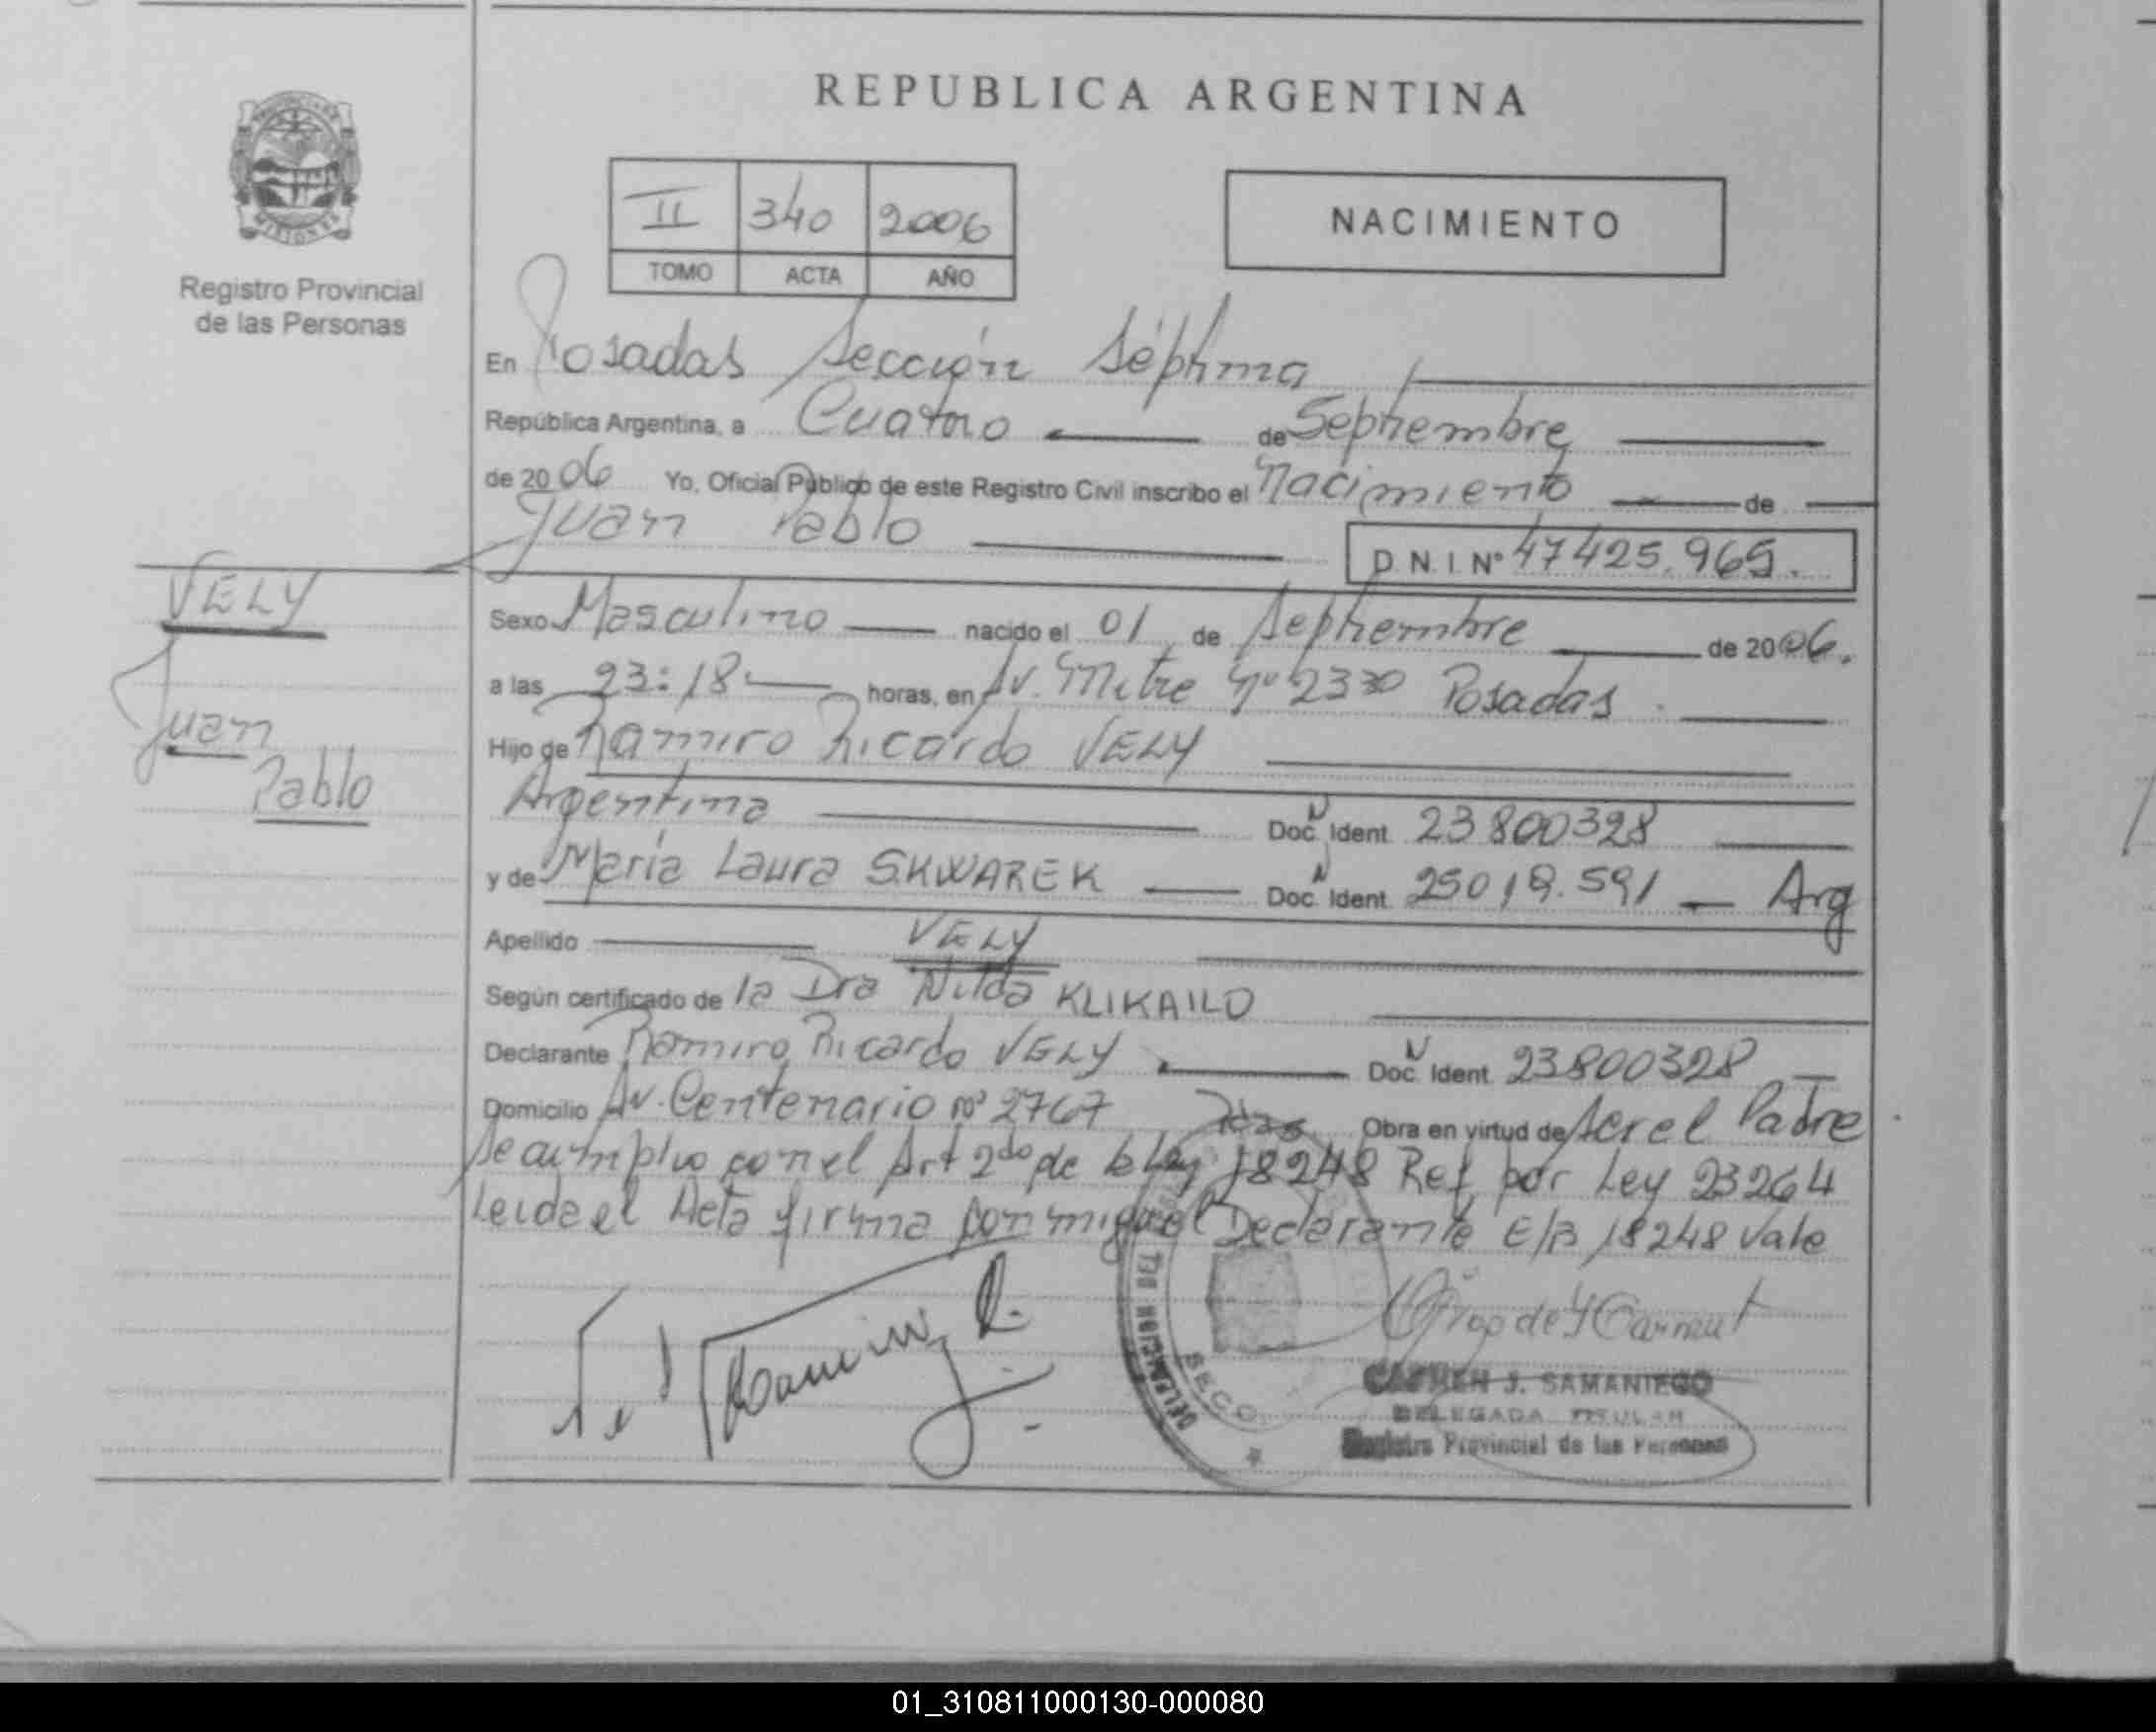 REPUBLICA ARGENTINA
II 340 2006
TOMO ACTA AÑO
NACIMIENTO
Registro Provincial
de las Personas
En Posadas Sección Séptima
República Argentina, a Cuatro de Septiembre
de 2006 Yo, Oficial Público de este Registro Civil inscribo el Nacimiento de
Juan Pablo
D.N.I. Nº 47425.965.
VELY
Juan
Pablo
Sexo Masculino nacido el 01 de Septiembre de 2006.
a las 23:18 horas, en Av. Mitre Nº 2330 Posadas
Hijo de Ramiro Ricardo VELY
Argentina Doc. Ident. 23800328
y de María Laura SKWAREK Doc. Ident. 25019.591 Arg
Apellido VELY
Según certificado de la Dra Nilda KLIKAILO
Declarante Ramiro Ricardo VELY Doc. Ident. 23800328
Domicilio Av. Centenario nº 2767 Pdas Obra en virtud de ser el Padre
se cumplio con el Art 2do de la Ley 18248 Ref por Ley 23264
Leida el Acta firma conmigo el Declarante E/B 18248 Vale
SECC.
CARMEN J. SAMANIEGO
DELEGADA TITULAR
Registro Provincial de las Personas
01_310811000130-000080